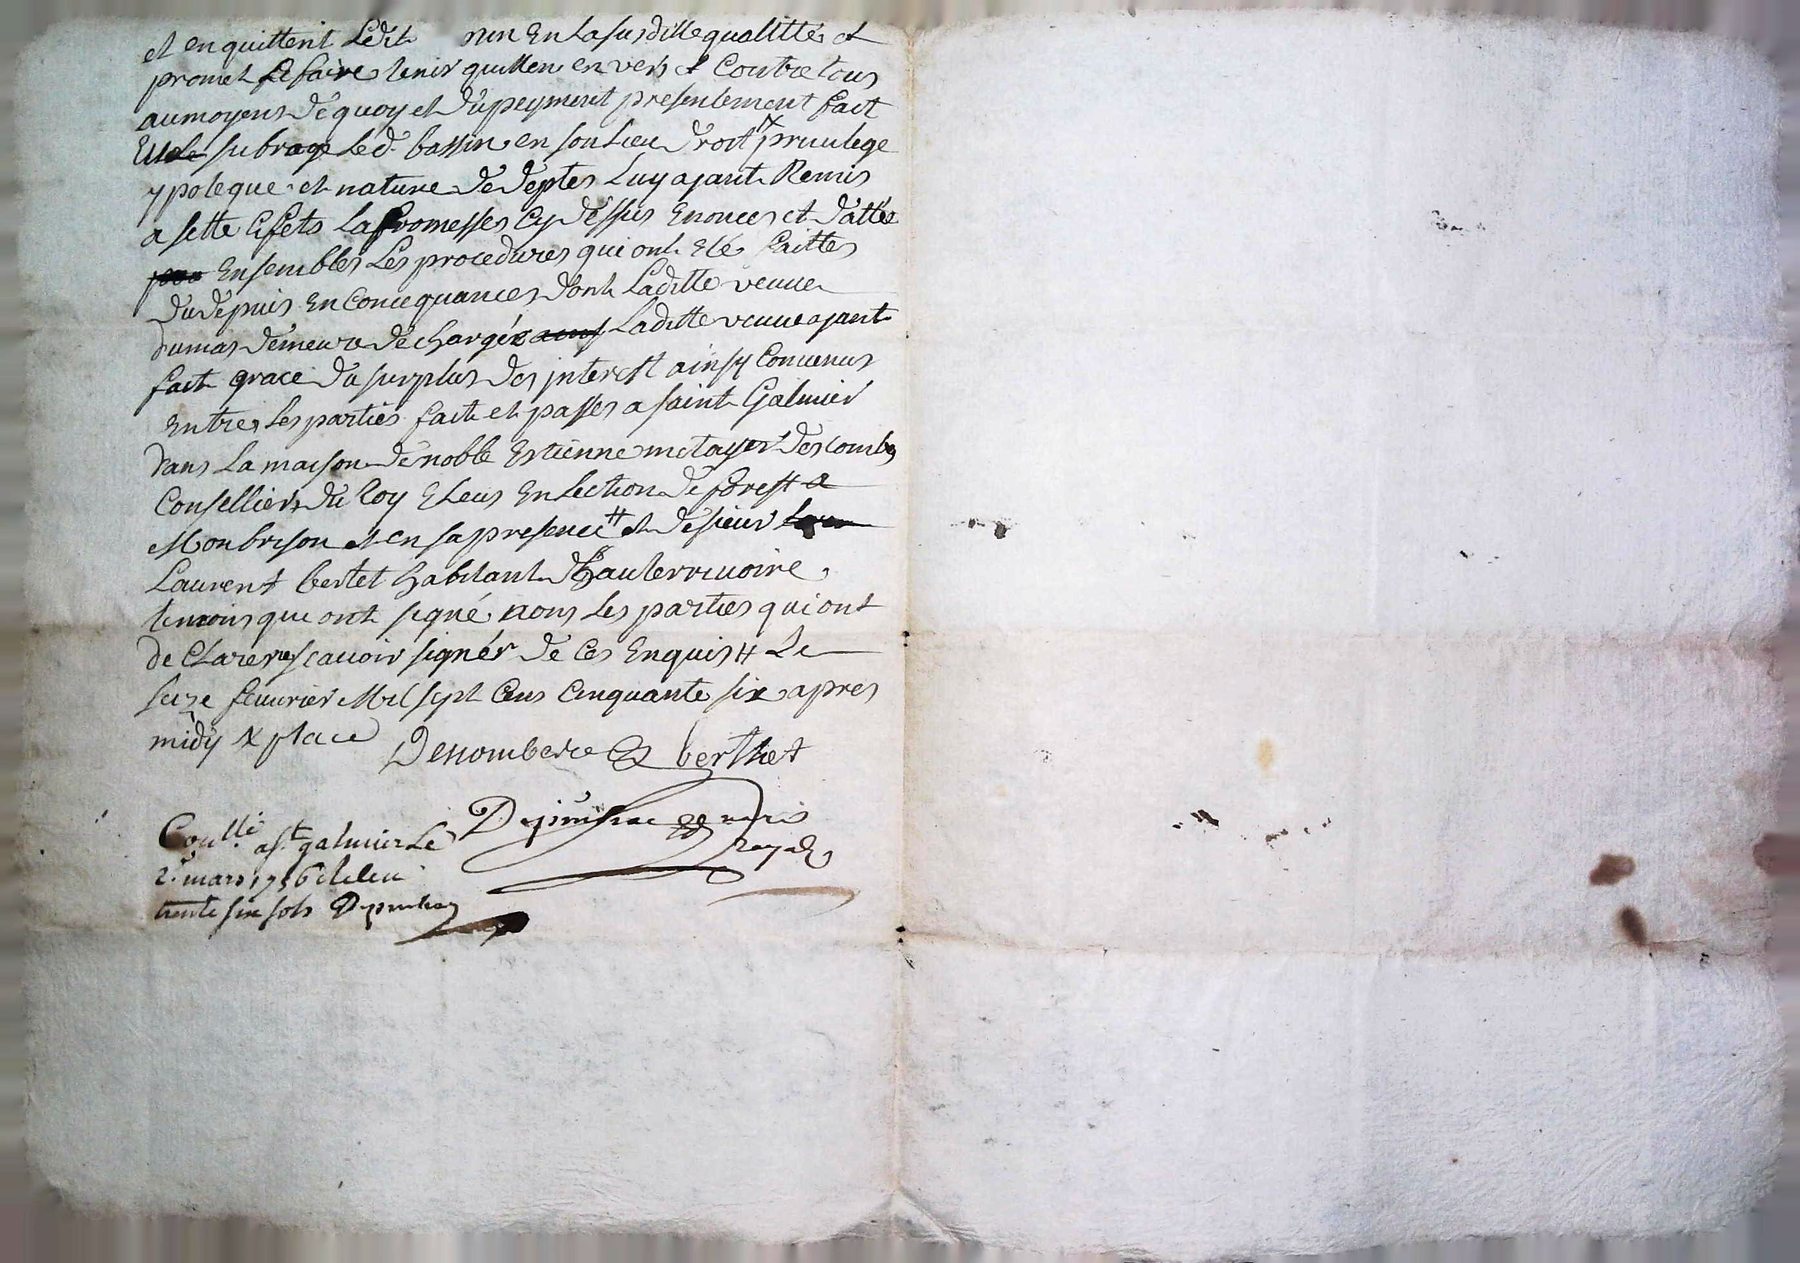 et en quittent Ledit en La susditte qualitté et
promet Le faire tenir quitten en vers et Contre tous
au moyens de quoy et du peyment presentement fact
subroge Led. bassin en son Lieu droit privilege
ypoteque et nature de deptes Luy ajant Remis
a sette Effets La promesses Cy dessus Enonces et dattés
Ensembles Les procedures qui ont Eté faittes
du depuis En Concequances dont Laditte veuue
dumas demeure dechargée Laditte veuue ajant
fact grace du surplus des jnterest ainsy Conuenus
Entre Les parties fact et passés a saint Galmier
dans La maison de noble Estienne metayer des combes
Conselliers du Roy Eleus En Lection de forest a
Monbrison et en sa presence # et de sieur
Laurent bertet habitant d'hauterriuoire
temoins que ont signé nons Les parties qui ont
de Clarérés scauoir signér de Ces Enquis # Le
seize feuurier Mil sept Cens Cinquante six apres
midy X place
Denombere berthet
Conllé a st galmier Le
2e mars 1756
trente six sols